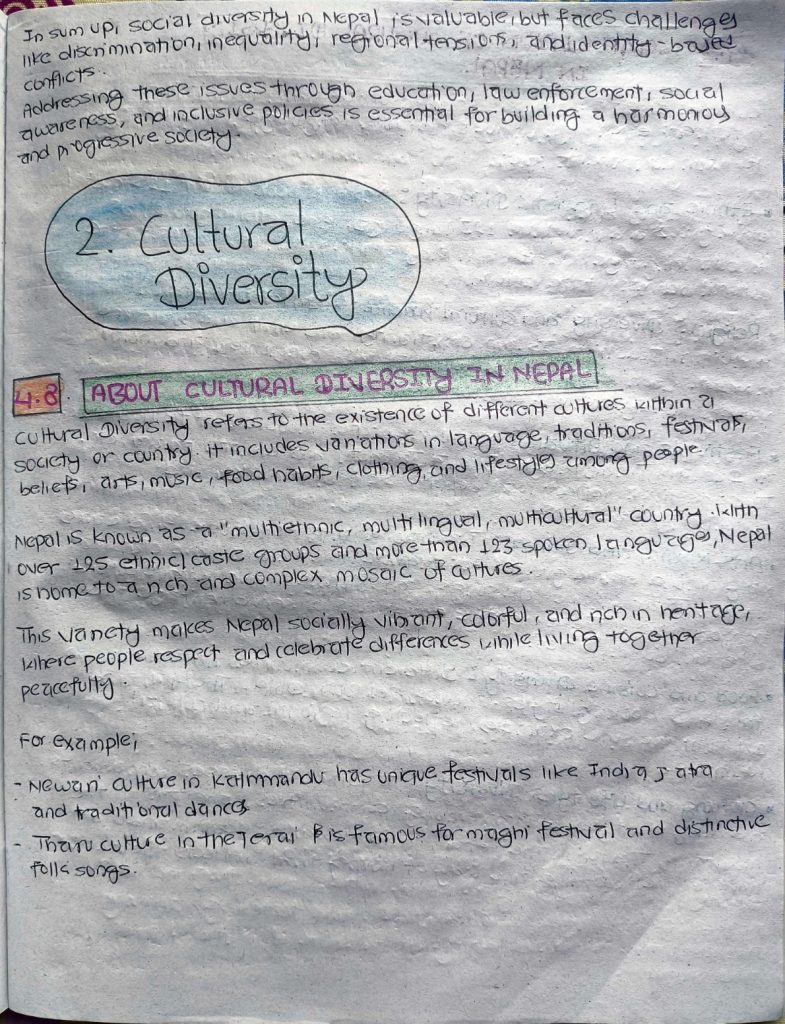 In sum up, social diversity in Nepal is valuable, but faces challenges
like discrimination, inequality, regional tensions, and identity-based
conflicts.
Addressing these issues through education, law enforcement, social
awareness, and inclusive policies is essential for building a harmonious
and progressive society.
2. Cultural
Diversity
4.8. ABOUT CULTURAL DIVERSITY IN NEPAL
Cultural Diversity refers to the existence of different cultures within a
society or country. it includes variations in language, traditions, festivals,
beliefs, arts, music, food habits, clothing, and lifestyles among people.
Nepal is known as a "multiethnic, multilingual, multicultural" country. With
over 125 ethnic/caste groups and more than 123 spoken languages, Nepal
is home to a rich and complex mosaic of cultures.
This variety makes Nepal socially vibrant, colorful, and rich in heritage,
where people respect and celebrate differences while living together
peacefully.
For example,
- Newari culture in Kathmandu has unique festivals like Indra Jatra
and traditional dances
- Tharu culture in the Terai is famous for maghi festival and distinctive
folk songs.